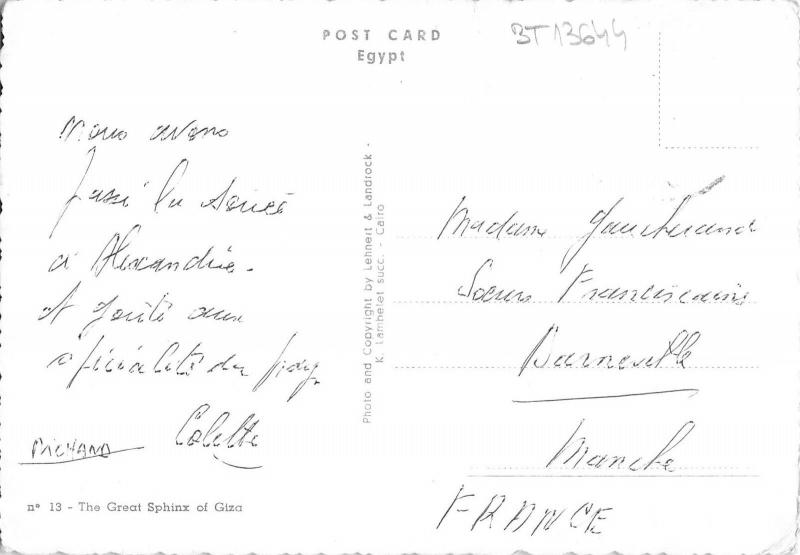 POST CARD
Egypt
BT13644
Nous avons
passé la soirée
à Alexandrie.
et goûté aux
spécialités du pays
Colette
MICHAND
n° 13 - The Great Sphinx of Giza
Photo and Copyright by Lehnert & Landrock -
K. Lambelet succ. - Cairo
Madame Gaucherand
Soeurs Franciscaines
Barneville
Manche
FRANCE